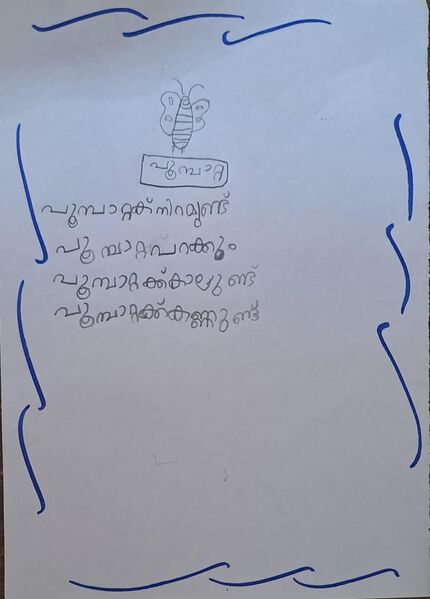 പൂമ്പാറ്റ
പൂമ്പാറ്റക്ക്നിറമുണ്ട്
പൂമ്പാറ്റപറക്കും
പൂമ്പാറ്റക്ക്കാലുണ്ട്
പൂമ്പാറ്റക്ക്കണ്ണുണ്ട്